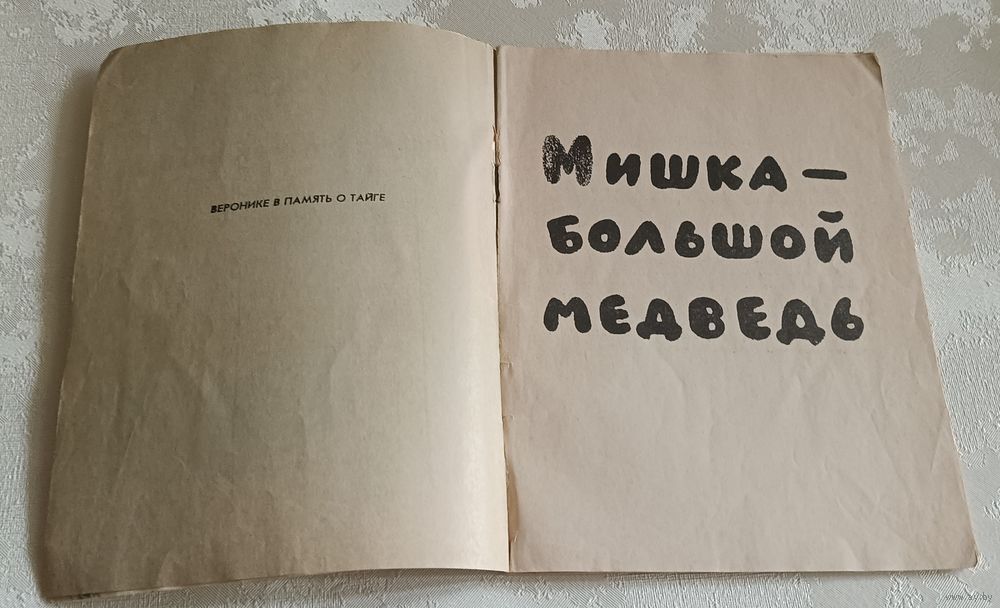 ВЕРОНИКЕ В ПАМЯТЬ О ТАЙГЕ
Мишка –
большой
медведь